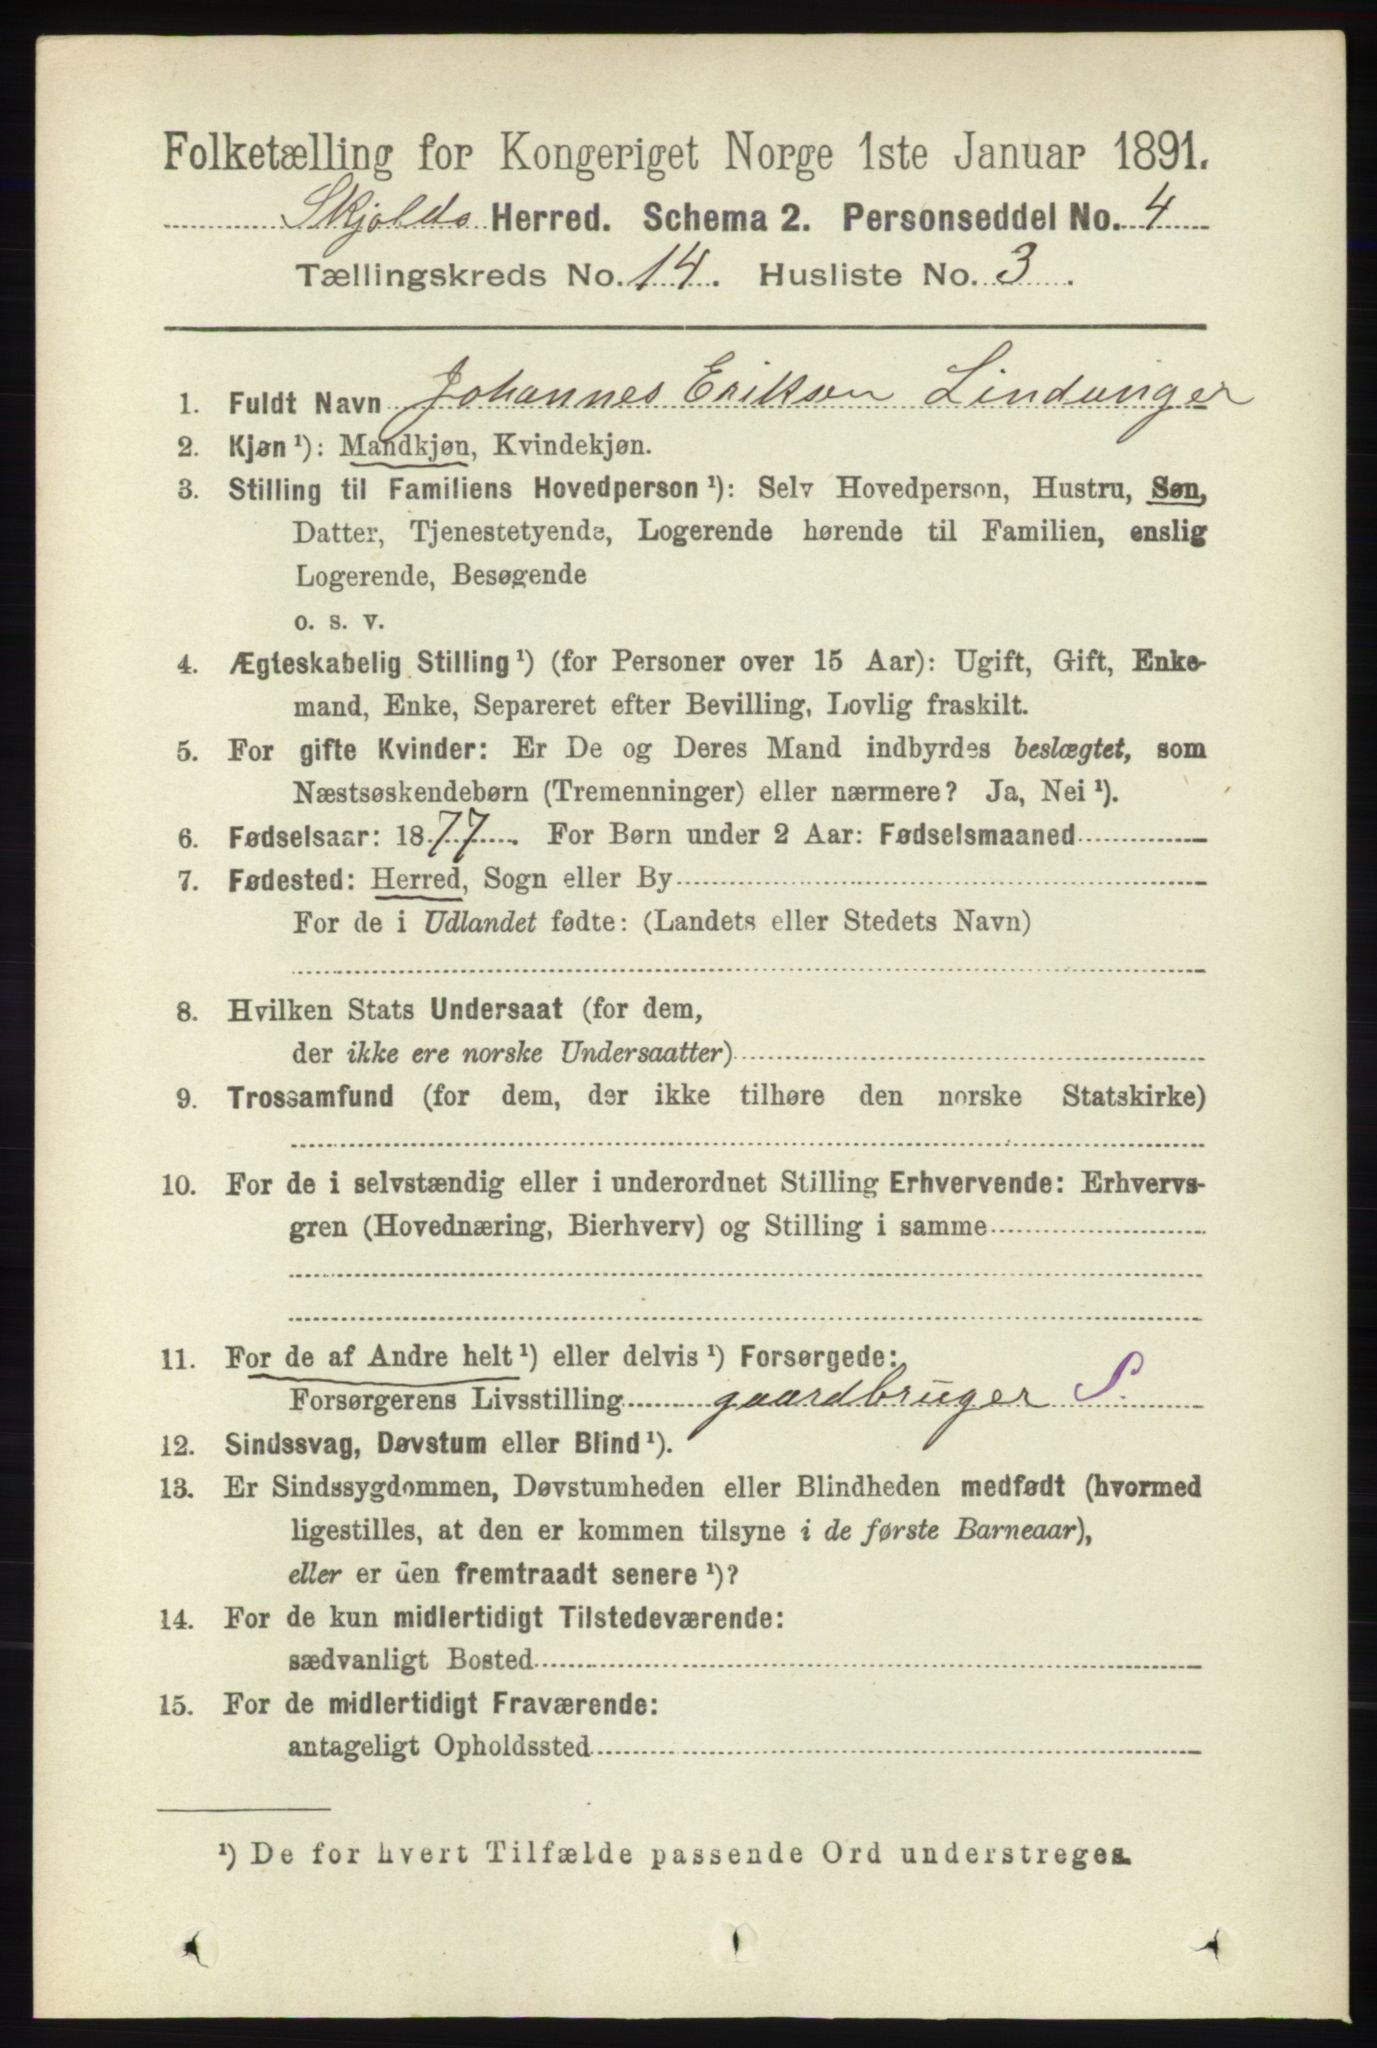 Folketælling for Kongeriget Norge 1ste Januar 1891.
Skjolds Herred. Schema 2. Personseddel No. 4
Tællingskreds No. 14. Husliste No. 3.
1. Fuldt Navn Johannes Erikson Lindanger
2. Kjøn ¹): Mandkjøn, Kvindekjøn.
3. Stilling til Familiens Hovedperson ¹): Selv Hovedperson, Hustru, Søn,
Datter, Tjenestetyende, Logerende hørende til Familien, enslig
Logerende, Besøgende
o. s. v.
4. Ægteskabelig Stilling ¹) (for Personer over 15 Aar): Ugift, Gift, Enke-
mand, Enke, Separeret efter Bevilling, Lovlig fraskilt.
5. For gifte Kvinder: Er De og Deres Mand indbyrdes beslægtet, som
Næstsøskendebørn (Tremenninger) eller nærmere? Ja, Nei ¹).
6. Fødselsaar: 1877. For Børn under 2 Aar: Fødselsmaaned
7. Fødested: Herred, Sogn eller By
For de i Udlandet fødte: (Landets eller Stedets Navn)
8. Hvilken Stats Undersaat (for dem,
der ikke ere norske Undersaatter)
9. Trossamfund (for dem, der ikke tilhøre den norske Statskirke)
10. For de i selvstændig eller i underordnet Stilling Erhvervende: Erhvervs-
gren (Hovednæring, Bierhverv) og Stilling i samme
11. For de af Andre helt ¹) eller delvis ¹) Forsørgede:
Forsørgerens Livsstilling gaardbruger S.
12. Sindssvag, Døvstum eller Blind ¹).
13. Er Sindssygdommen, Døvstumheden eller Blindheden medfødt (hvormed
ligestilles, at den er kommen tilsyne i de første Barneaar),
eller er den fremtraadt senere ¹)?
14. For de kun midlertidigt Tilstedeværende:
sædvanligt Bosted
15. For de midlertidigt Fraværende:
antageligt Opholdssted
¹) De for hvert Tilfælde passende Ord understreges.